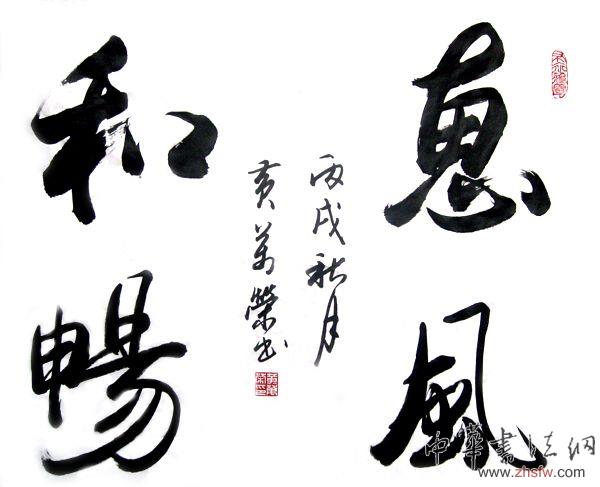 惠風
和暢
丙戌秋月
黄萬榮书
中華書法網
www.zhsfw.com